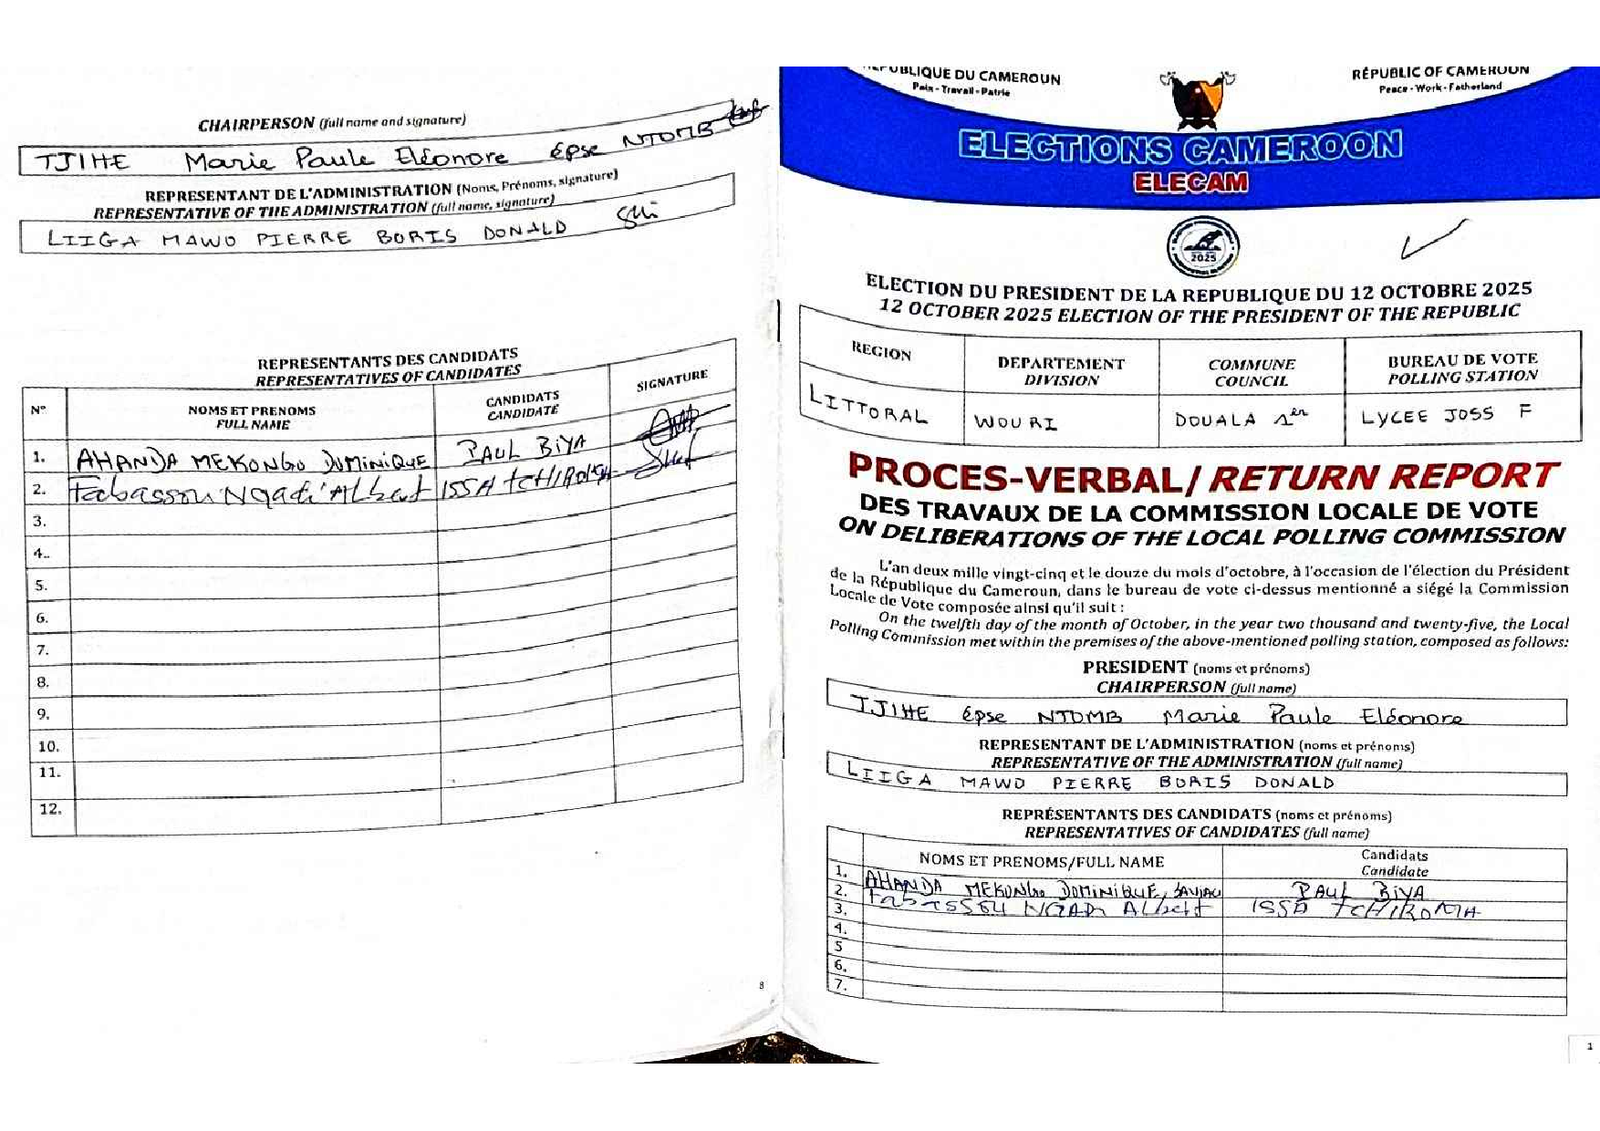 CHAIRPERSON (full name and signature)
TJIHE Marie Paule Eléonore épse NTOMB
REPRESENTANT DE L'ADMINISTRATION (Noms, Prénoms, signature)
REPRESENTATIVE OF THE ADMINISTRATION (full name, signature)
LIIGA MAWO PIERRE BORIS DONALD
REPRESENTANTS DES CANDIDATS
REPRESENTATIVES OF CANDIDATES
N° NOMS ET PRENOMS CANDIDATS SIGNATURE
FULL NAME CANDIDATE
1. AHANDA MEKONGO DOMINIQUE PAUL BIYA
2. Tabassou Ngadi Albert ISSA TCHIROMA
3.
4..
5.
6.
7.
8.
9.
10.
11.
12.
8
REPUBLIQUE DU CAMEROUN
Paix - Travail - Patrie
RÉPUBLIC OF CAMEROUN
Peace - Work - Fatherland
ELECTIONS CAMEROON
ELECAM
2025
ELECTION DU PRESIDENT DE LA REPUBLIQUE DU 12 OCTOBRE 2025
12 OCTOBER 2025 ELECTION OF THE PRESIDENT OF THE REPUBLIC
REGION DEPARTEMENT COMMUNE BUREAU DE VOTE
DIVISION COUNCIL POLLING STATION
LITTORAL WOURI DOUALA 1er LYCEE JOSS F
PROCES-VERBAL/ RETURN REPORT
DES TRAVAUX DE LA COMMISSION LOCALE DE VOTE
ON DELIBERATIONS OF THE LOCAL POLLING COMMISSION
L'an deux mille vingt-cinq et le douze du mois d'octobre, à l'occasion de l'élection du Président
de la République du Cameroun, dans le bureau de vote ci-dessus mentionné a siégé la Commission
Locale de Vote composée ainsi qu'il suit :
On the twelfth day of the month of October, in the year two thousand and twenty-five, the Local
Polling Commission met within the premises of the above-mentioned polling station, composed as follows:
PRESIDENT (noms et prénoms)
CHAIRPERSON (full name)
TJIHE épse NTOMB Marie Paule Eléonore
REPRESENTANT DE L'ADMINISTRATION (noms et prénoms)
REPRESENTATIVE OF THE ADMINISTRATION (full name)
LIIGA MAWO PIERRE BORIS DONALD
REPRÉSENTANTS DES CANDIDATS (noms et prénoms)
REPRESENTATIVES OF CANDIDATES (full name)
NOMS ET PRENOMS/FULL NAME Candidats
Candidate
1. AHANDA MEKONGO DOMINIQUE PAUL BIYA
2. Tabassou NGADI Albert ISSA TCHIROMA
3.
4.
5
6.
7.
1